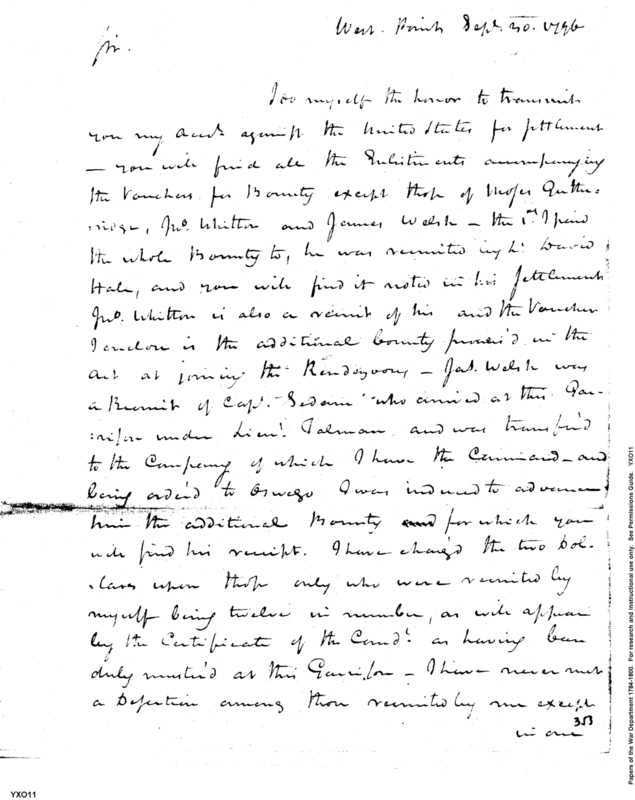 West Point Sept. 30. 1796
Sir.
I do myself the honor to transmit
you my Accts. against the United States for settlement
— you will find all the Enlistments accompanying
the Vouchers for Bounty except those of Moses Guthe-
:ridge, Jno. Whitton and James Welsh — the 1st I paid
the whole Bounty to, he was recruited by Lt. David
Hale, and you will find it noted in his settlements
Jno. Whitton is also a recruit of his and the Voucher
I enclose is the additional bounty promis'd in the
Act at joining the Rendezvous — Jas. Welsh was
a Recruit of Capt. Sedam who arrived at this Gar-
:rison under Lieut. Talman and was transfer'd
to the Company of which I have the Command — and
being order'd to Oswego I was induced to advance
him the additional Bounty and for which you
will find his receipt. I have charg'd the two Dol-
:lars upon those only who were recruited by
myself being twelve in number, as will appear
by the Certificate of the Comdt. as having been
duly muster'd at this Garrison — I have never met
a Desertion among those recruited by me except
353
in one
YXO11
Papers of the War Department 1784-1800. For research and instructional use only. See Permissions Guide. YXO11